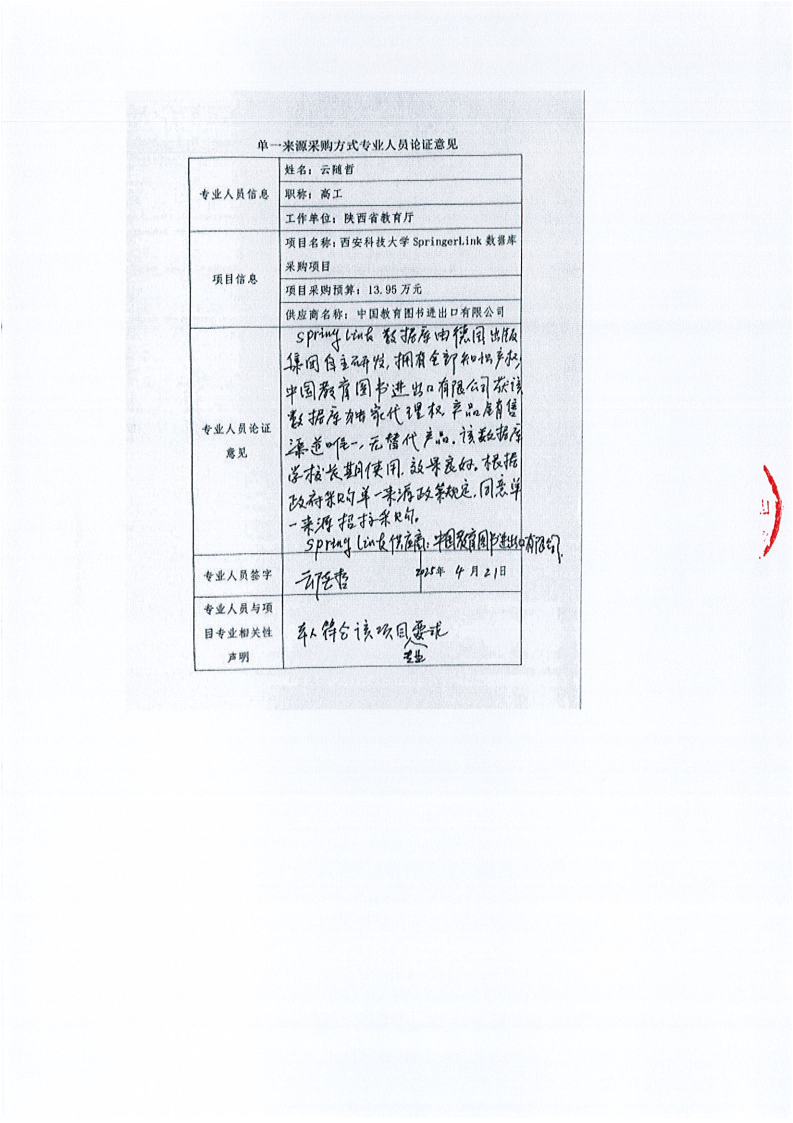 单一来源采购方式专业人员论证意见
专业人员信息
姓名：云随哲
职称：高工
工作单位：陕西省教育厅
项目信息
项目名称：西安科技大学 SpringerLink 数据库
采购项目
项目采购预算：13.95 万元
供应商名称：中国教育图书进出口有限公司
专业人员论证
意见
Spring Link 数据库由德国出版
集团自主研发，拥有全部知识产权，
中国教育图书进出口有限公司获该
数据库独家代理权，产品属销售
渠道唯一，无替代产品。该数据库
学校长期使用，效果良好。根据
政府采购单一来源政策规定，同意单
一来源招标采购。
Spring Link 供应商：中国教育图书进出口有限公司.
专业人员签字
2025年 4 月 21日
专业人员与项
目专业相关性
声明
本人符合该项目要求
专业